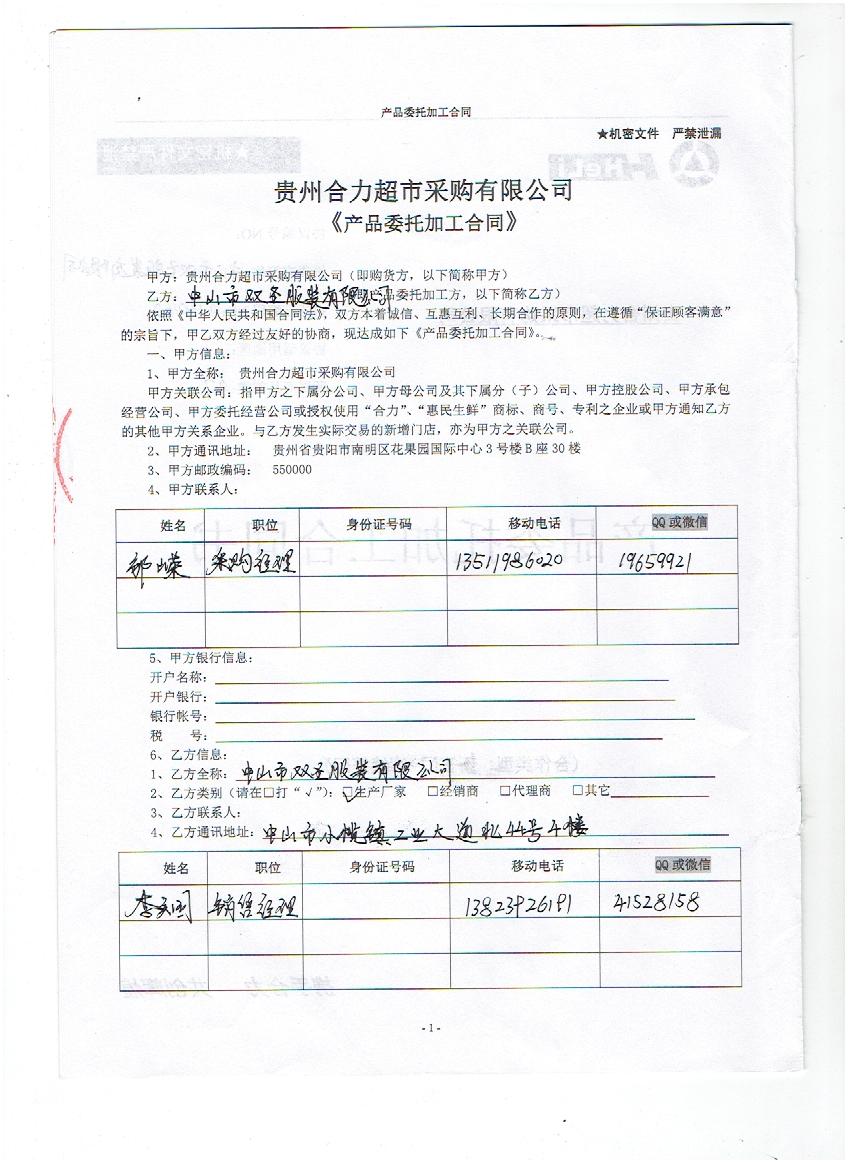 产品委托加工合同
★机密文件 严禁泄漏
贵州合力超市采购有限公司
《产品委托加工合同》
甲方：贵州合力超市采购有限公司（即购货方，以下简称甲方）
乙方：中山市双圣服装有限公司产品委托加工方，以下简称乙方）
依照《中华人民共和国合同法》，双方本着诚信、互惠互利、长期合作的原则，在遵循“保证顾客满意”
的宗旨下，甲乙双方经过友好的协商，现达成如下《产品委托加工合同》。
一、甲方信息：
1、甲方全称： 贵州合力超市采购有限公司
甲方关联公司：指甲方之下属分公司、甲方母公司及其下属分（子）公司、甲方控股公司、甲方承包
经营公司、甲方委托经营公司或授权使用“合力”、“惠民生鲜”商标、商号、专利之企业或甲方通知乙方
的其他甲方关系企业。与乙方发生实际交易的新增门店，亦为甲方之关联公司。
2、甲方通讯地址： 贵州省贵阳市南明区花果园国际中心 3 号楼 B 座 30 楼
3、甲方邮政编码： 550000
4、甲方联系人：
姓名 职位 身份证号码 移动电话 QQ 或微信
采购经理 13511986020 19659921
5、甲方银行信息：
开户名称：
开户银行：
银行帐号：
税 号：
6、乙方信息：
1、乙方全称：中山市双圣服装有限公司
2、乙方类别（请在□打“√”）：☑生产厂家 □经销商 □代理商 □其它
3、乙方联系人：
4、乙方通讯地址：中山市小榄镇工业大道北44号4楼
姓名 职位 身份证号码 移动电话 QQ 或微信
销售经理 41528158
- 1 -